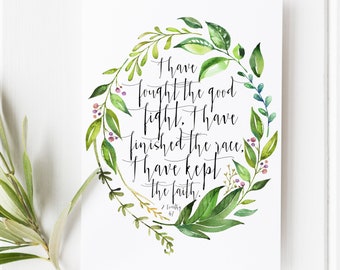 I have
fought the good
fight. I have
finished the race,
I have kept
the faith.
2 Timothy
4:7